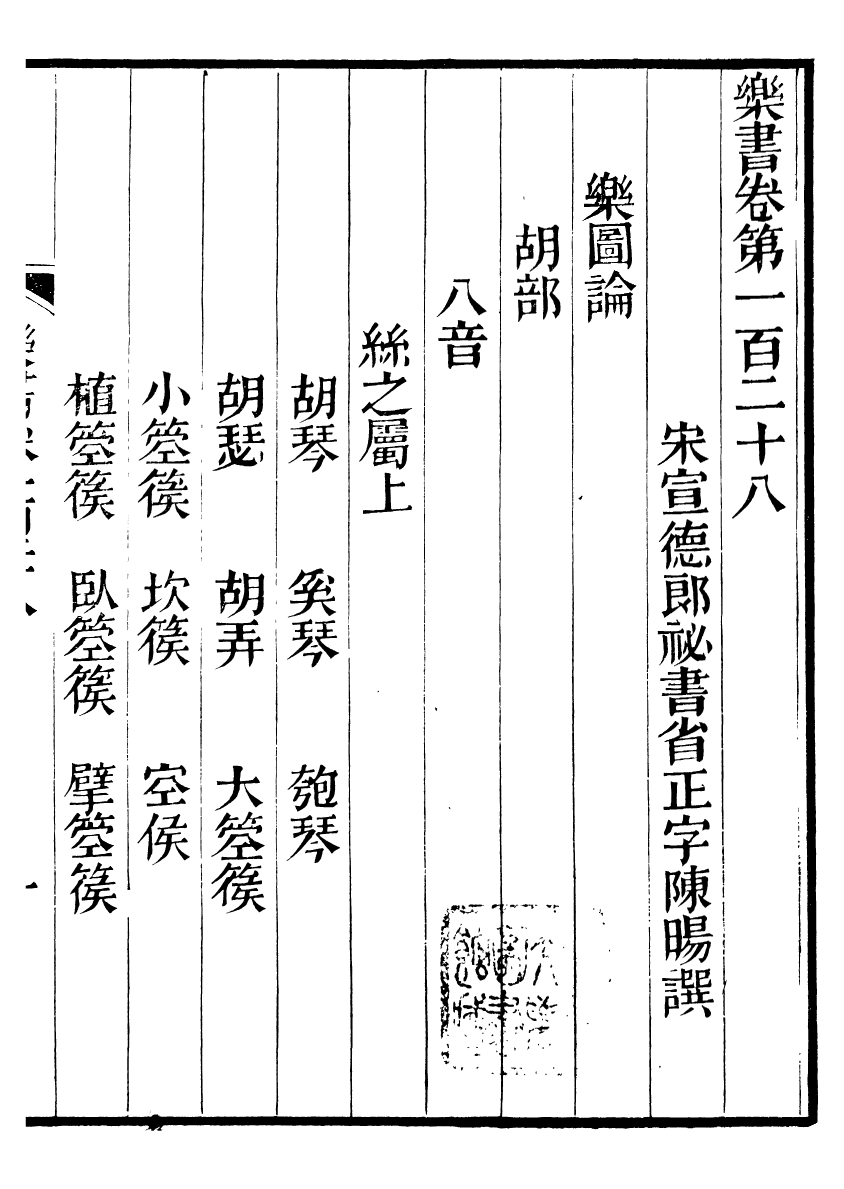 樂書卷第一百二十八
宋宣德郎祕書省正字陳暘譔
樂圖論
胡部
八音
絲之屬上
胡琴　奚琴　匏琴
胡瑟　胡弄　大箜篌
小箜篌　坎篌　空侯
植箜篌　臥箜篌　擘箜篌